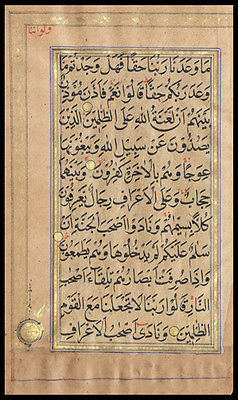 ولواننا
مَا وَعَدَنَا رَبُّنَا حَقًّا فَهَلْ وَجَدْتُمْ مَا
وَعَدَ رَبُّكُمْ حَقًّا قَالُوا نَعَمْ فَاَذَّنَ مُؤَذِّنٌ
بَيْنَهُمْ اَنْ لَعْنَةُ اللهِ عَلَى الظّٰلِمِينَ الَّذِينَ
يَصُدُّونَ عَنْ سَبِيلِ اللهِ وَيَبْغُونَهَا
عِوَجًا وَهُمْ بِالْاٰخِرَةِ كٰفِرُونَ وَبَيْنَهُمَا
حِجَابٌ وَعَلَى الْاَعْرَافِ رِجَالٌ يَعْرِفُونَ
كُلًّا بِسِيمٰهُمْ وَنَادَوْا اَصْحٰبَ الْجَنَّةِ اَنْ
سَلٰمٌ عَلَيْكُمْ لَمْ يَدْخُلُوهَا وَهُمْ يَطْمَعُونَ
وَاِذَا صُرِفَتْ اَبْصَارُهُمْ تِلْقَاءَ اَصْحٰبِ
النَّارِ قَالُوا رَبَّنَا لَا تَجْعَلْنَا مَعَ الْقَوْمِ
الظّٰلِمِينَ وَنَادٰى اَصْحٰبُ الْاَعْرَافِ